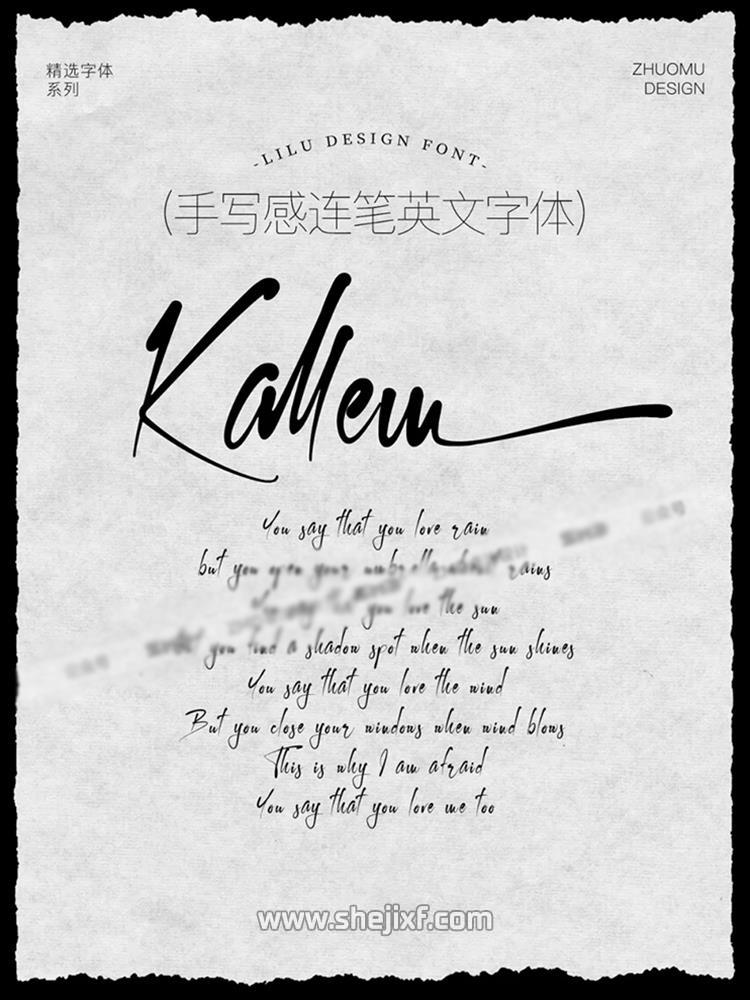 精选字体
系列
ZHUOMU
DESIGN
-LILU DESIGN FONT-
(手写感连笔英文字体)
Kallem
You say that you love rain
but you open your rains
you love the sun
you find a shadow spot when the sun shines
You say that you love the wind
But you close your windows when wind blows
This is why I am afraid
You say that you love me too
www.shejixf.com